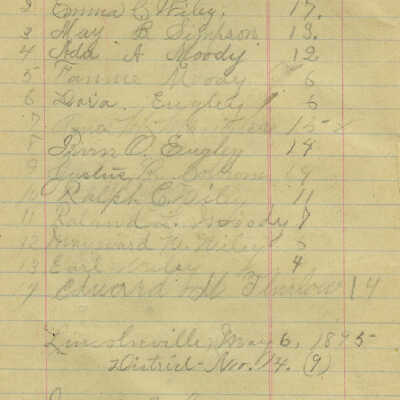 2 Emma C. Wiley. 17.
3 May B. Simpson 13.
4 Ada A Moody 12
5 Fannie Moody 6
6 Dora. Eugley 6
7 15
8 Burn O. Eugley 14
9 Justus
10 Ralph C. Wiley 11
11 Roland L. Moody 7
12 Maynard N. Wiley
13 Earl Wiley 4
14 Edward M Thurlow 14
Lincolnville, May 6, 1895
District No. 14. (9)